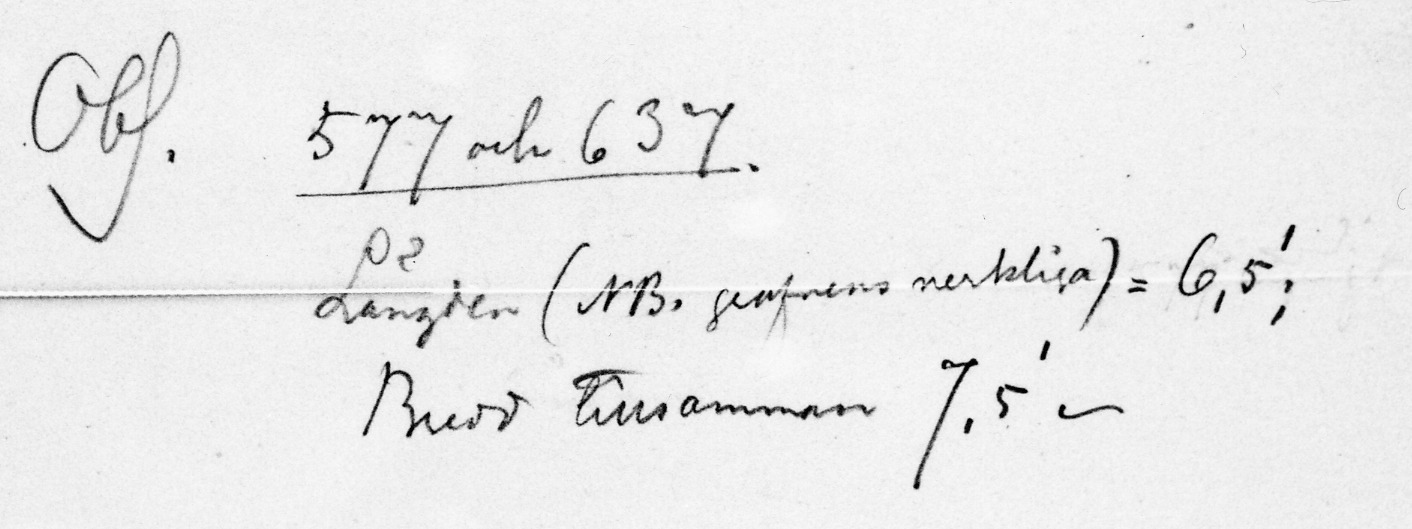 Obs. 577 och 637.
Längden (NB. grafvens verkliga) = 6,5';
Bredd tillsamman 7,5'